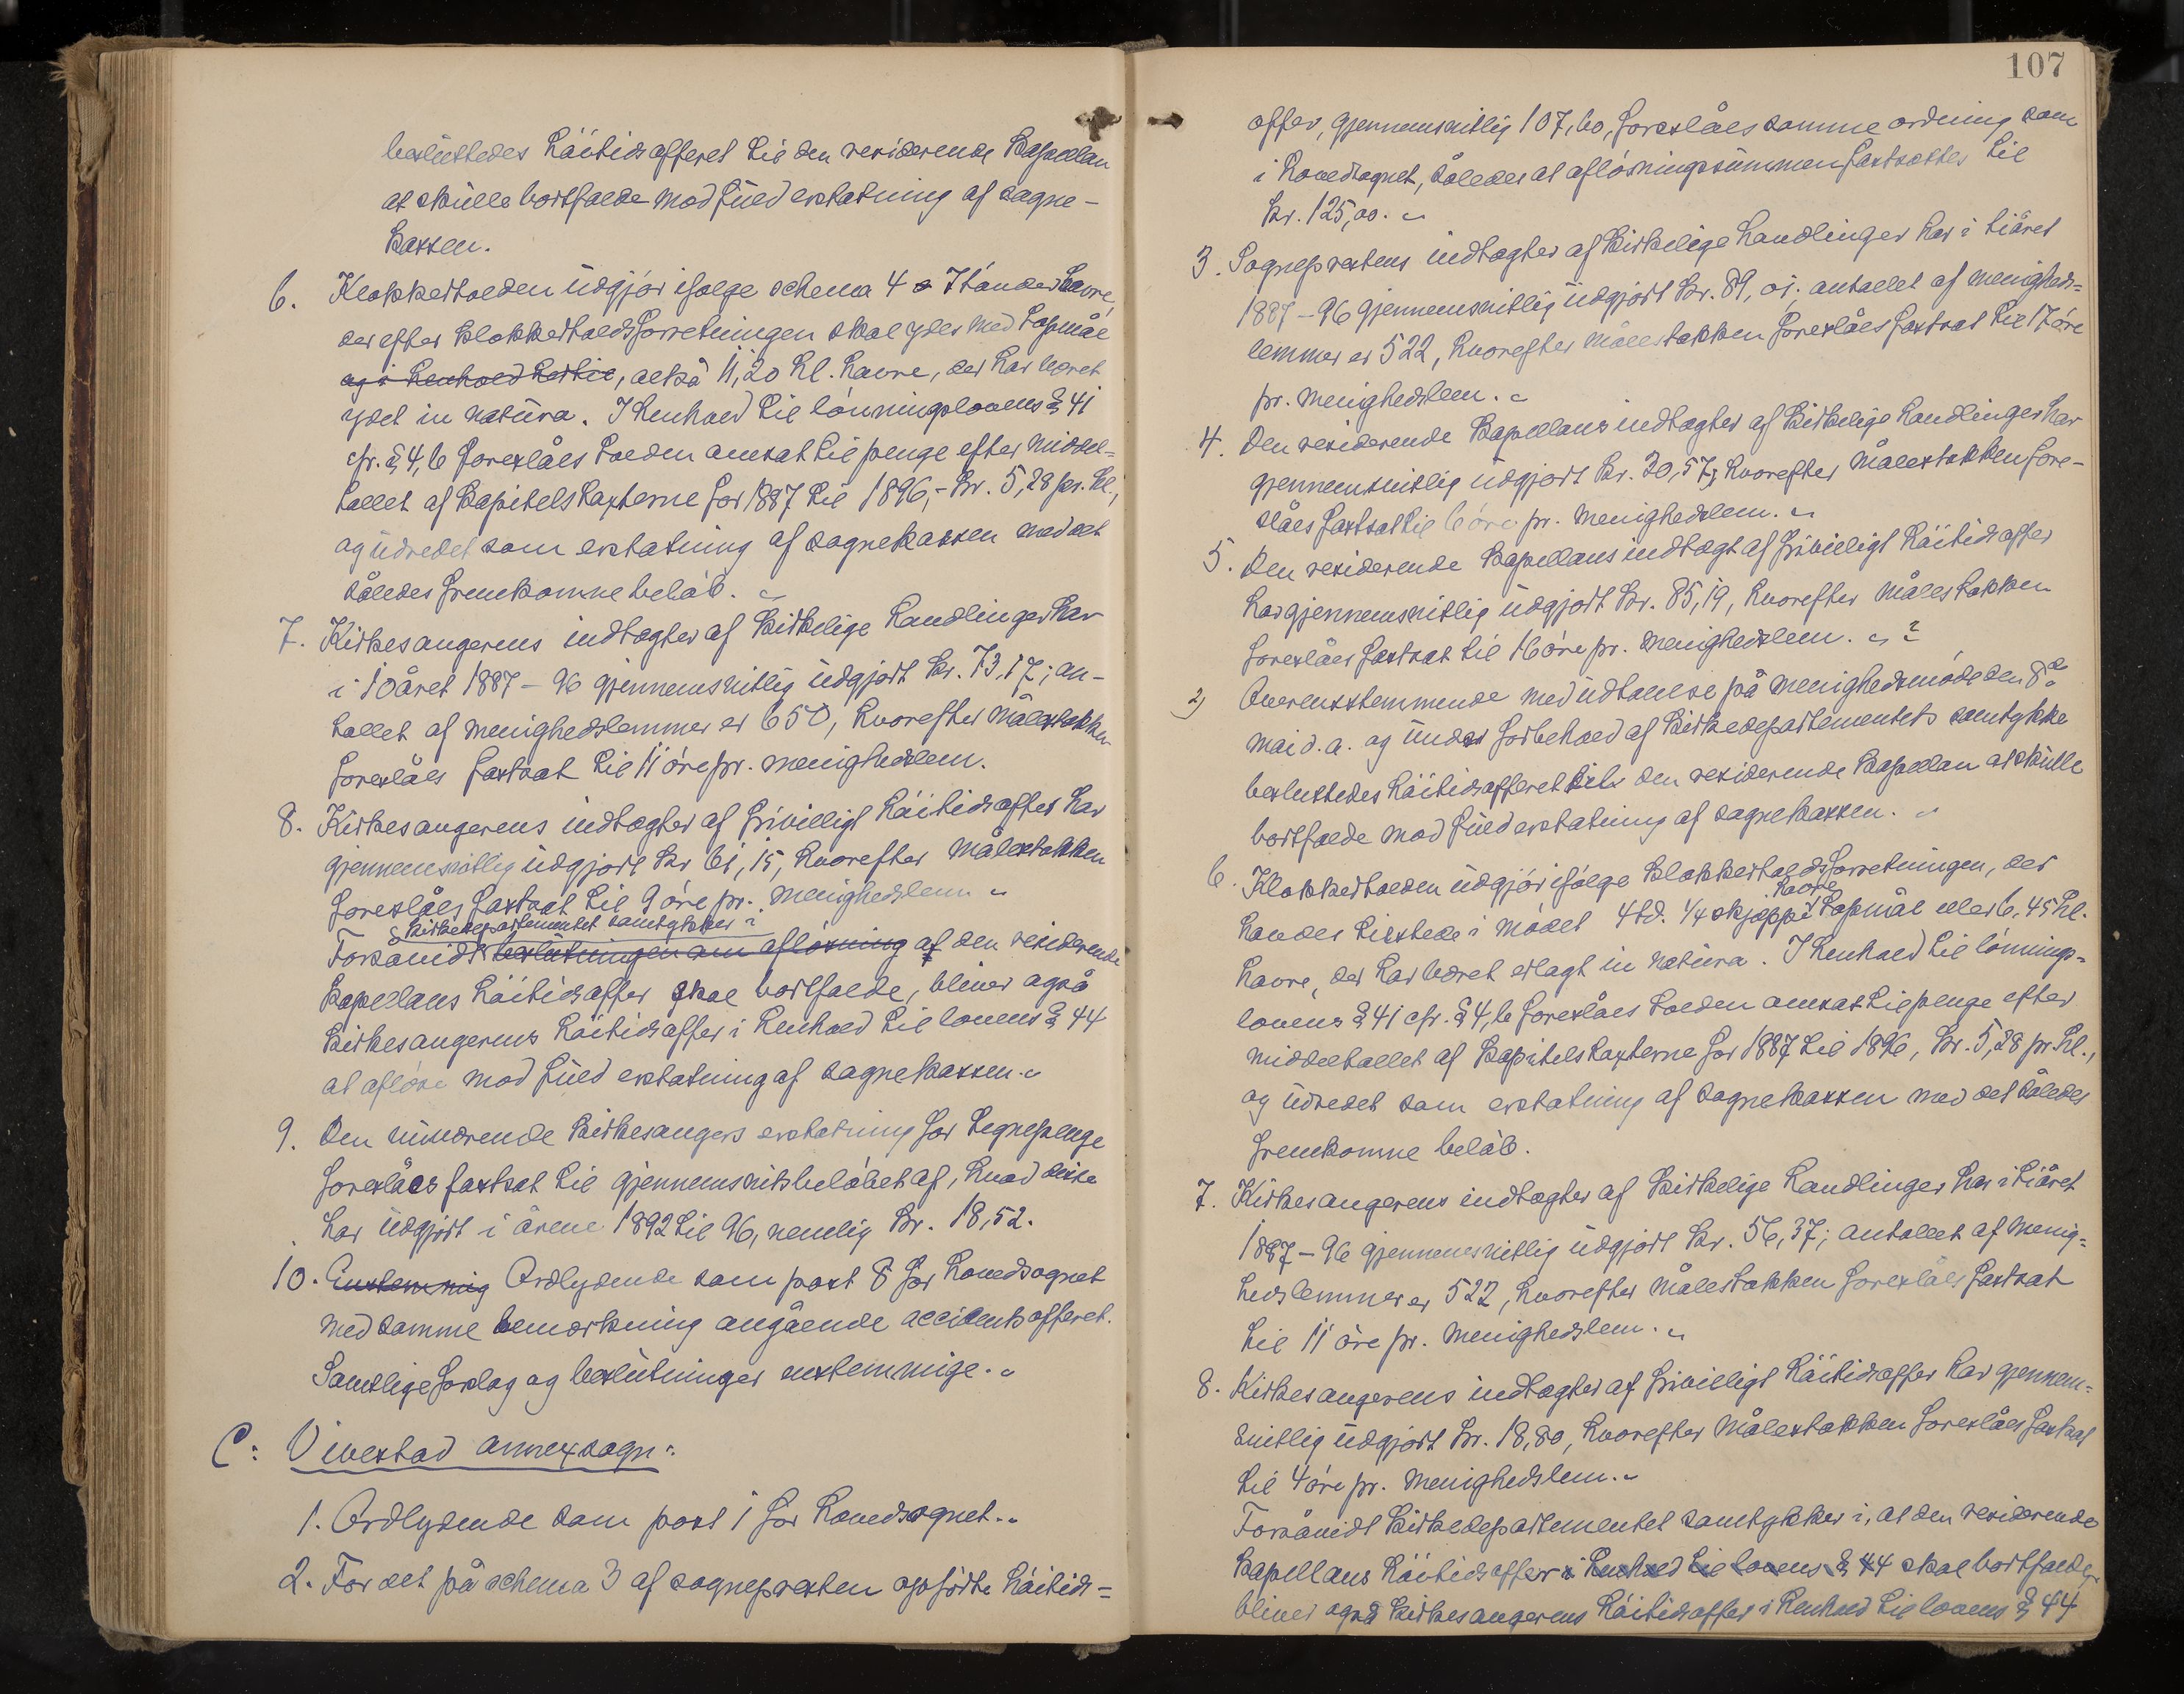 besluttedes höitidsofferet til den residerende kapellan
at skulle bortfalde mod fuld erstatning af sogne-
kassen.
6. Klokkertolden udgjör ifölge schema 4 7 tönder havre,
der efter klokkertoldsforretningen skal ydes med topmål
og i henhold hertil, altså 11,20 hl. havre, der har været
ydet in natura. I henhold til lönningslovens § 41
cfr. § 4,b foreslåes tolden omsat til penge efter middel=
tallet af kapitelstaxterne for 1887 til 1896, - kr. 5,28 pr. hl.,
og udredet som erstatning af sognekassen med det
således fremkomne belöb.
7. Kirkesangerens indtægter af kirkelige handlinger har
i 10året 1887-96 gjennemsnitlig udgjort kr. 73,17; an-
tallet af menighedslemmer er 650, hvorefter målestokken
foreslåes fastsat til 11 öre pr. menighedslem.
8. Kirkesangerens indtægter af frivilligt höitidsoffer har
gjennemsnitlig udgjort kr 61,15, hvorefter målestokken
foreslåes fastsat til 9 öre pr. menighedslem
kirkedepartementet samtykker i
Forsåvidt beslutningen om aflösning af den residerende
kapellans höitidsoffer skal bortfalde, bliver også
kirkesangerens höitidsoffer i henhold til lovens § 44
at aflöse mod fuld erstatning af sognekassen.
9. Den nuværende kirkesangers erstatning for tegnepenge
foreslåes fastsat til gjennemsnitsbelöbet af, hvad disse
har udgjort i årene 1892 til 96, nemlig kr. 18,52.
10. Enstemmig Ordlydende som post 8 for hovedsognet
med samme bemærkning angående accidentsofferet.
Samtlige forslag og beslutninger enstemmige.
C: Vivestad annexsogn:
1. Ordlydende som post 1 for hovedsognet.
2. For det på schema 3 af sognepresten opförte höitids=
107
offer, gjennemsnitlig 107,60, foreslåes samme ordning som
i hovedsognet, således at aflösningssummen fastsættes til
kr. 125,00.
3. Sogneprestens indtægter af kirkelige handlinger har i tiåret
1887-96 gjennemsnitlig udgjort kr. 89,01; antallet af menigheds=
lemmer er 522, hvorefter målestokken foreslåes fastsat til 17 öre
pr. menighedslem.
4. Den residerende kapellans indtægter af kirkelige handlinger har
gjennemsnitlig udgjort kr. 30,57; hvorefter målestokken fore-
slåes fastsat til 6 öre pr. menighedslem.
5. Den residerende kapellans indtægt af frivilligt höitidsoffer
har gjennemsnitlig udgjort kr. 85,19, hvorefter målestokken
foreslåes fastsat til 16 öre pr. menighedslem. ?
2) Overensstemmende med udtalelse på menighedsmöde den 8de
mai d. a. og under forbehold af kirkedepartementets samtykke
besluttedes höitidsofferet til den residerende kapellan at skulle
bortfalde mod fuld erstatning af sognekassen.
6. Klokkertolden udgjör ifölge klokkertoldsforretningen, der
havre
havdes tilstede i mödet 4 td. 1/4 skjæppe topmål eller 6.45 hl.
havre, der har været erlagt in natura. I henhold til lönnings=
lovens § 41 cfr. § 4, b foreslåes tolden omsat til penge efter
middeltallet af kapitelstaxterne for 1887 til 1896, kr. 5,28 pr. hl.,
og udredet som erstatning af sognekassen med det således
fremkomne belöb.
7. Kirkesangerens indtægter af kirkelige handlinger har i tiåret
1887-96 gjennemsnitlig udgjort kr. 56,37; antallet af menig=
hedslemmer er 522, hvorefter målestokken foreslåes fastsat
til 11 öre pr. menighedslem.
8. Kirkesangerens indtægter af frivilligt höitidsoffer har gjennem=
snitlig udgjort kr. 18,80, hvorefter målestokken foreslåes fastsat
til 4 öre pr. menighedslem.
Forsåvidt kirkedepartementet samtykker i, at den residerende
kapellans höitidsoffer i henhold til lovens § 44 skal bortfalde,
bliver også kirkesangerens höitidsoffer i henhold til lovens § 44